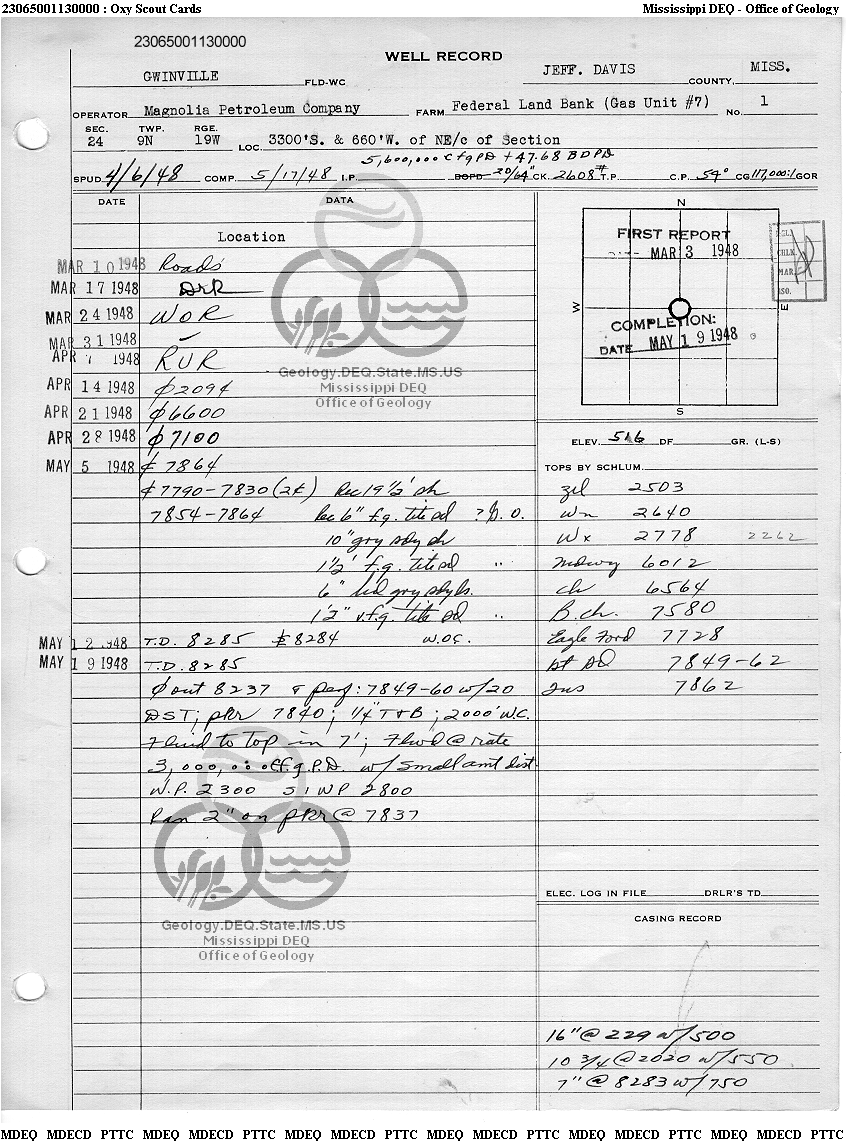 23065001130000 : Oxy Scout Cards Mississippi DEQ - Office of Geology
23065001130000
WELL RECORD
GWINVILLE FLD-WC JEFF. DAVIS COUNTY, MISS.
OPERATOR Magnolia Petroleum Company FARM Federal Land Bank (Gas Unit #7) No. 1
SEC. TWP. RGE.
24 9N 19W LOC. 3300'S. & 660'W. of NE/c of Section
5,600,000 CfgPD + 47.68 BDPD
SPUD 4/6/48 COMP. 5/17/48 I.P. BOPD 20/64" CK. 2608# T.P. C.P. 54° CG 117,000:1 GOR
DATE DATA
Location
MAR 10 1948 Roads
MAR 17 1948 DrR
MAR 24 1948 WOR
MAR 31 1948 ✓
APR 7 1948 RUR
APR 14 1948 ⌀ 2094
APR 21 1948 ⌀ 6600
APR 28 1948 ⌀ 7100
MAY 5 1948 ₵ 7864
₵ 7790-7830 (2₵) Rec 19 1/2' sh
7854-7864 Rec 6" f.g. tite sd ? G.O.
10" gry sdy sh
1'2' f.g. tite sd "
6" hd gry sdy ls.
1'2" v.f.g. tite sd "
MAY 12 1948 T.D. 8285 8284 W.O.C.
MAY 19 1948 T.D. 8285
⌀ out 8237 & perf: 7849-60 w/20
DST; pkr 7840; 1/4" T&B; 2000' W.C.
Fluid to Top in 7'; Flwd @ rate
3,000,000 cf.g.P.D. w/ small amt dist.
W.P. 2300 SIWP 2800
Ran 2" on pkr @ 7837
N
FIRST REPORT
MAR 3 1948
W E
COMPLETION:
DATE MAY 19 1948
S
CHLK
MAR.
ELEV. 516 DF GR. (L-S)
TOPS BY SCHLUM.
zil 2503
Wn 2640
Wx 2778 2262
Midwy 6012
ch 6564
B.ch. 7580
Eagle Ford 7728
st Sd 7849-62
Tus 7862
ELEC. LOG IN FILE DRLR'S TD
CASING RECORD
16" @ 229 w/500
10 3/4 @ 2020 w/550
7" @ 8283 w/750
Geology.DEQ.State.MS.US
Mississippi DEQ
Office of Geology
Geology.DEQ.State.MS.US
Mississippi DEQ
Office of Geology
MDEQ MDECD PTTC MDEQ MDECD PTTC MDEQ MDECD PTTC MDEQ MDECD PTTC MDEQ MDECD PTTC MDEQ MDECD PTTC